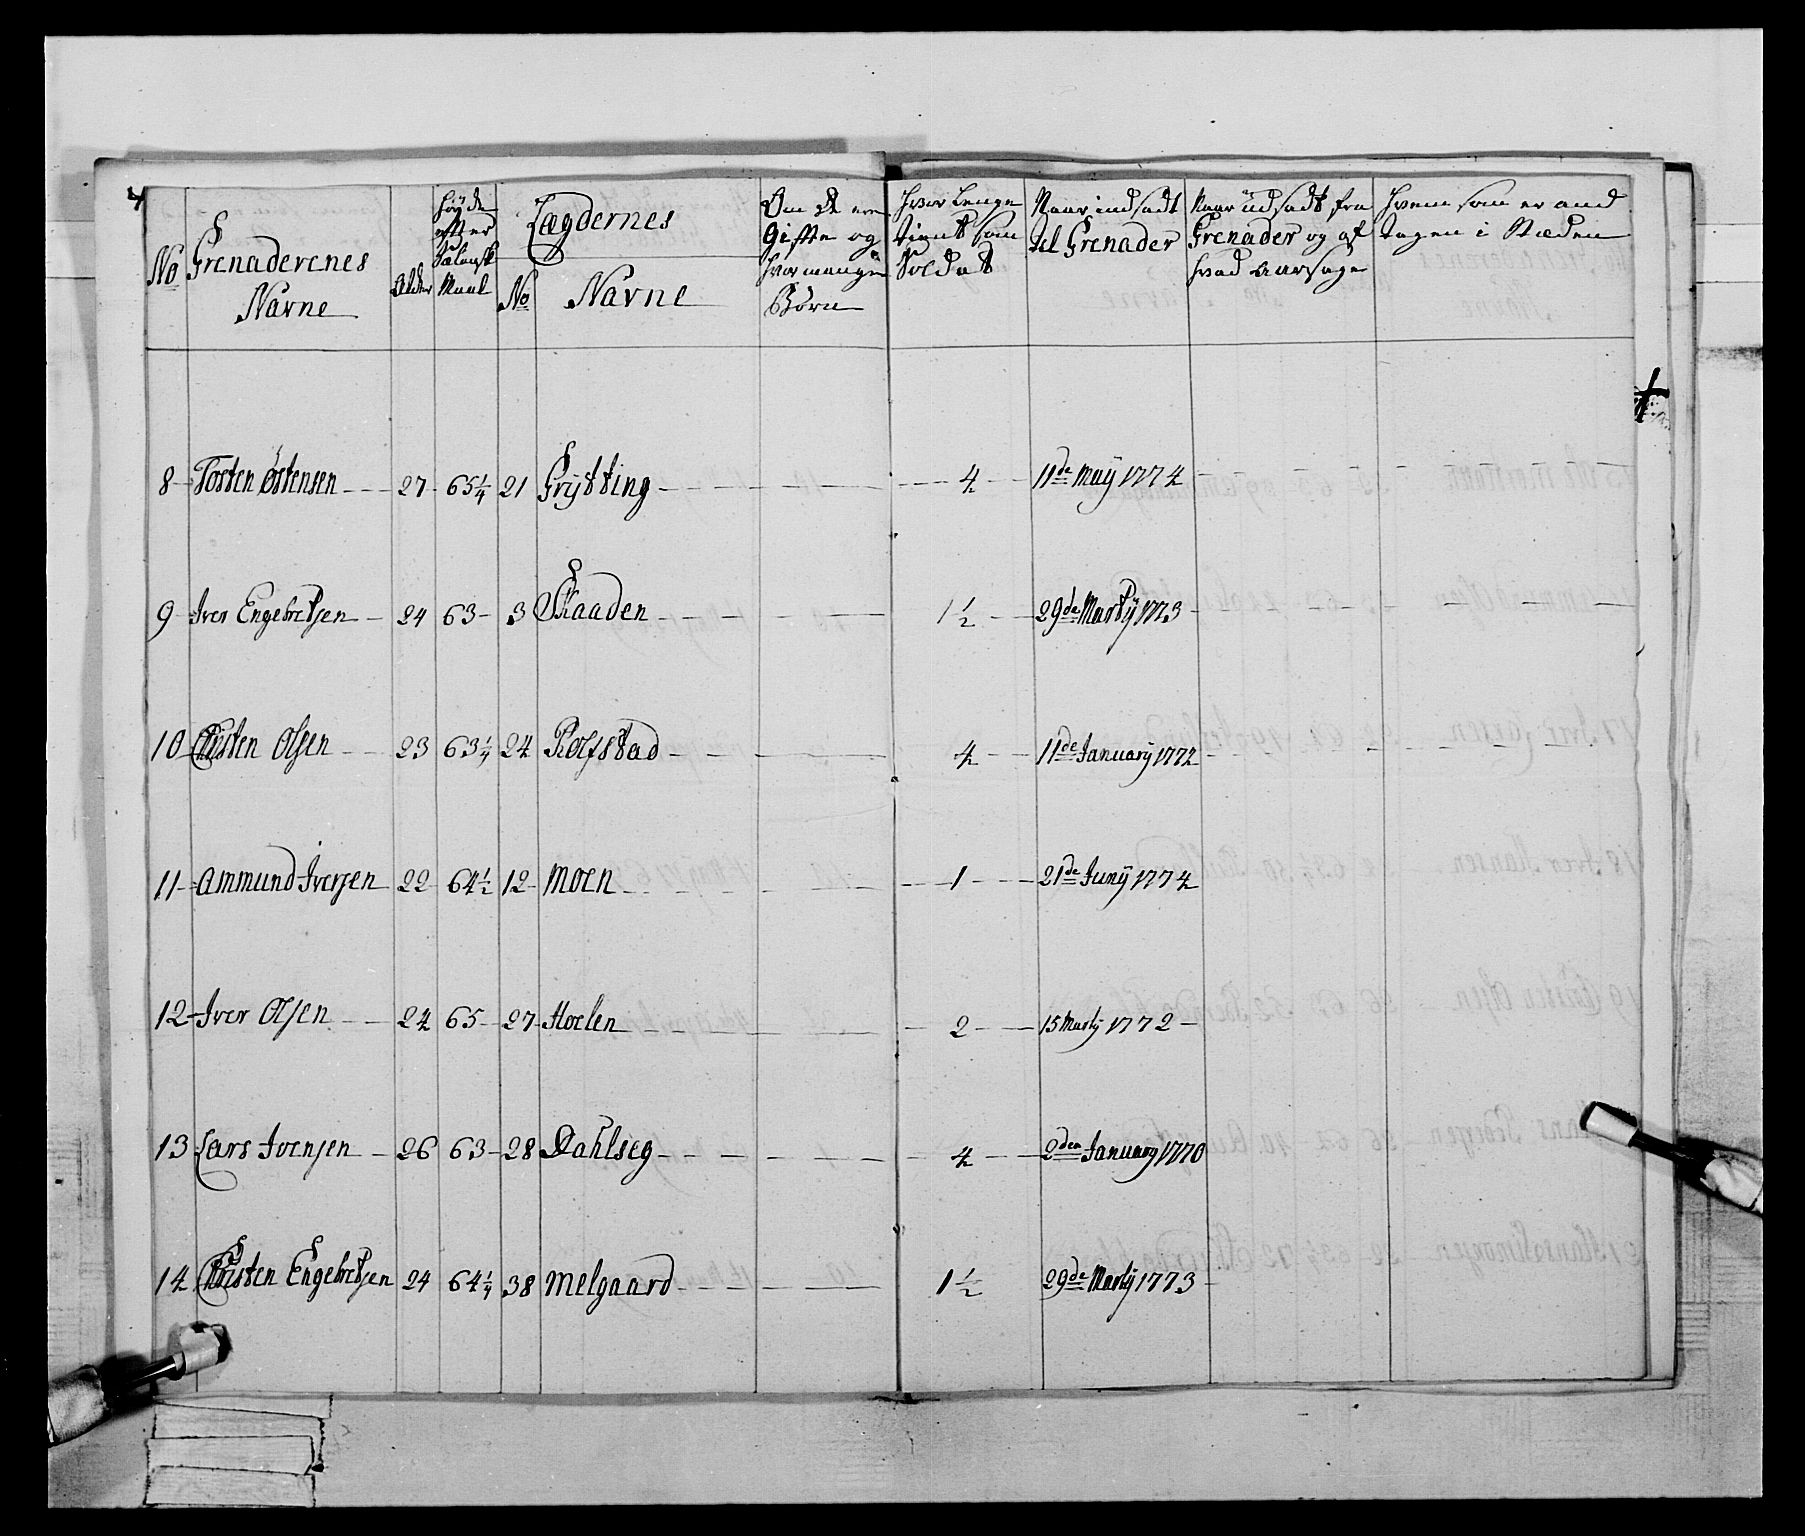 4
No
Grenaderenes
Navne
Alder
Höyde
efter
Sælansk
Maal
Lægdernes
No
Navne
Om de ere
Gifte og
hvor mange
Börn
Hvor Lenge
tient som
Soldat
Naar indsadt
til Grenader
Naar udsadt fra
Grenader og af
hvad Aarsage
Hvem som er and
tagen i Stæden
8 Tosten Östensen 27 65 1/4 21 Grÿtting 4 11de Maÿ 1774
9 Iver Engebretsen 24 63 3 Skaaden 1 1/2 29de Martÿ 1773
10 Christen Olsen 23 63 1/4 24 Rolfstad 4 11de Januarÿ 1772
11 Ammund Iversen 22 64 1/2 12 Moen 1 21de Junÿ 1774
12 Iver Olsen 24 65 27 Hoelen 2 15 Martÿ 1772
13 Lars Ivensen 26 63 28 Dahlseg 4 2den January 1770
14 Christen Engebretsen 24 64 1/4 38 Melgaard 1 1/2 29de Martÿ 1773